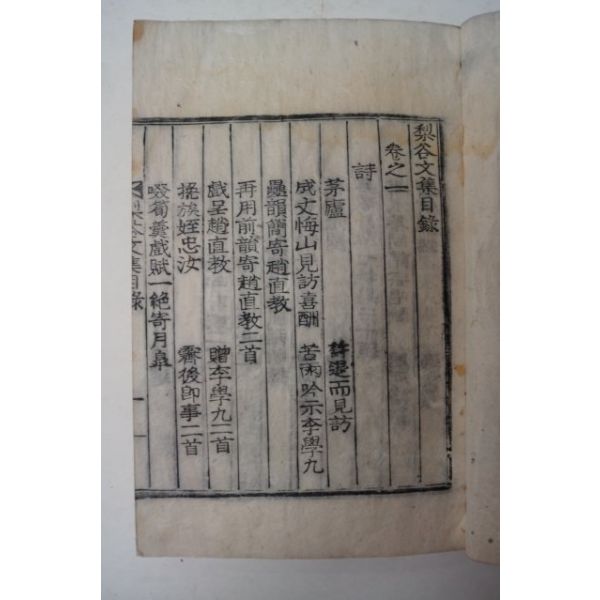 梨谷文集目錄
卷之一
詩
茅廬 許退而見訪
成丈悔山見訪喜酬 苦雨吟示李學九
疊韻簡寄趙直教
再用前韻寄趙直教二首
戲呈趙直教 贈李學九二首
挽族姪忠汝 霽後即事二首
啜筍羹戲賦一絶寄月皐
梨谷文集目錄 一